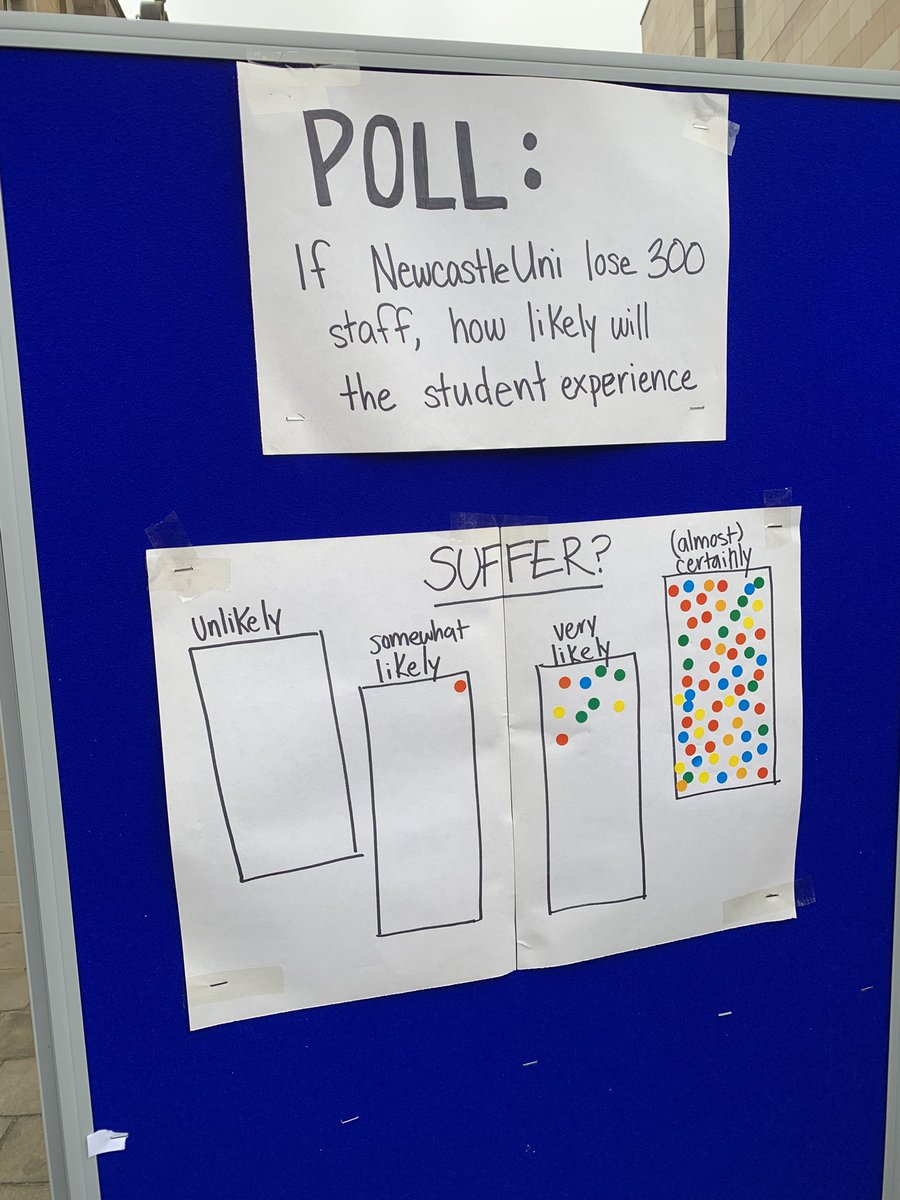 POLL:
If NewcastleUni lose 300
staff, how likely will
the student experience
SUFFER?
unlikely
somewhat
likely
very
likely
(almost)
certainly